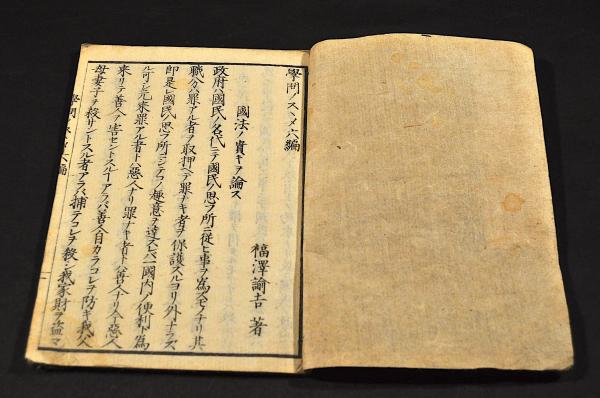 學問ノスヽメ六編
國法ノ貴キヲ論ス
福澤諭吉著
政府ハ國民ノ名代ニテ國民ノ思フ所ニ從ヒ事ヲ為スモノナリ其
職分ハ罪アル者ヲ取押ヘテ罪ナキ者ヲ保護スルヨリ外ナラズ
即是レ國民ノ思フ所ニシテコノ趣意ヲ達スレバ一國内ノ便利ト為
ル可シ元來罪アル者トハ惡人ナリ罪ナキ者トハ善人ナリ今惡人
來リテ善人ヲ害セントスルヿアラバ善人自カラコレヲ防キ我父
母妻子ヲ殺サントスル者アラバ捕テコレヲ殺シ我家財ヲ盗マ
學問ノスヽメ六編